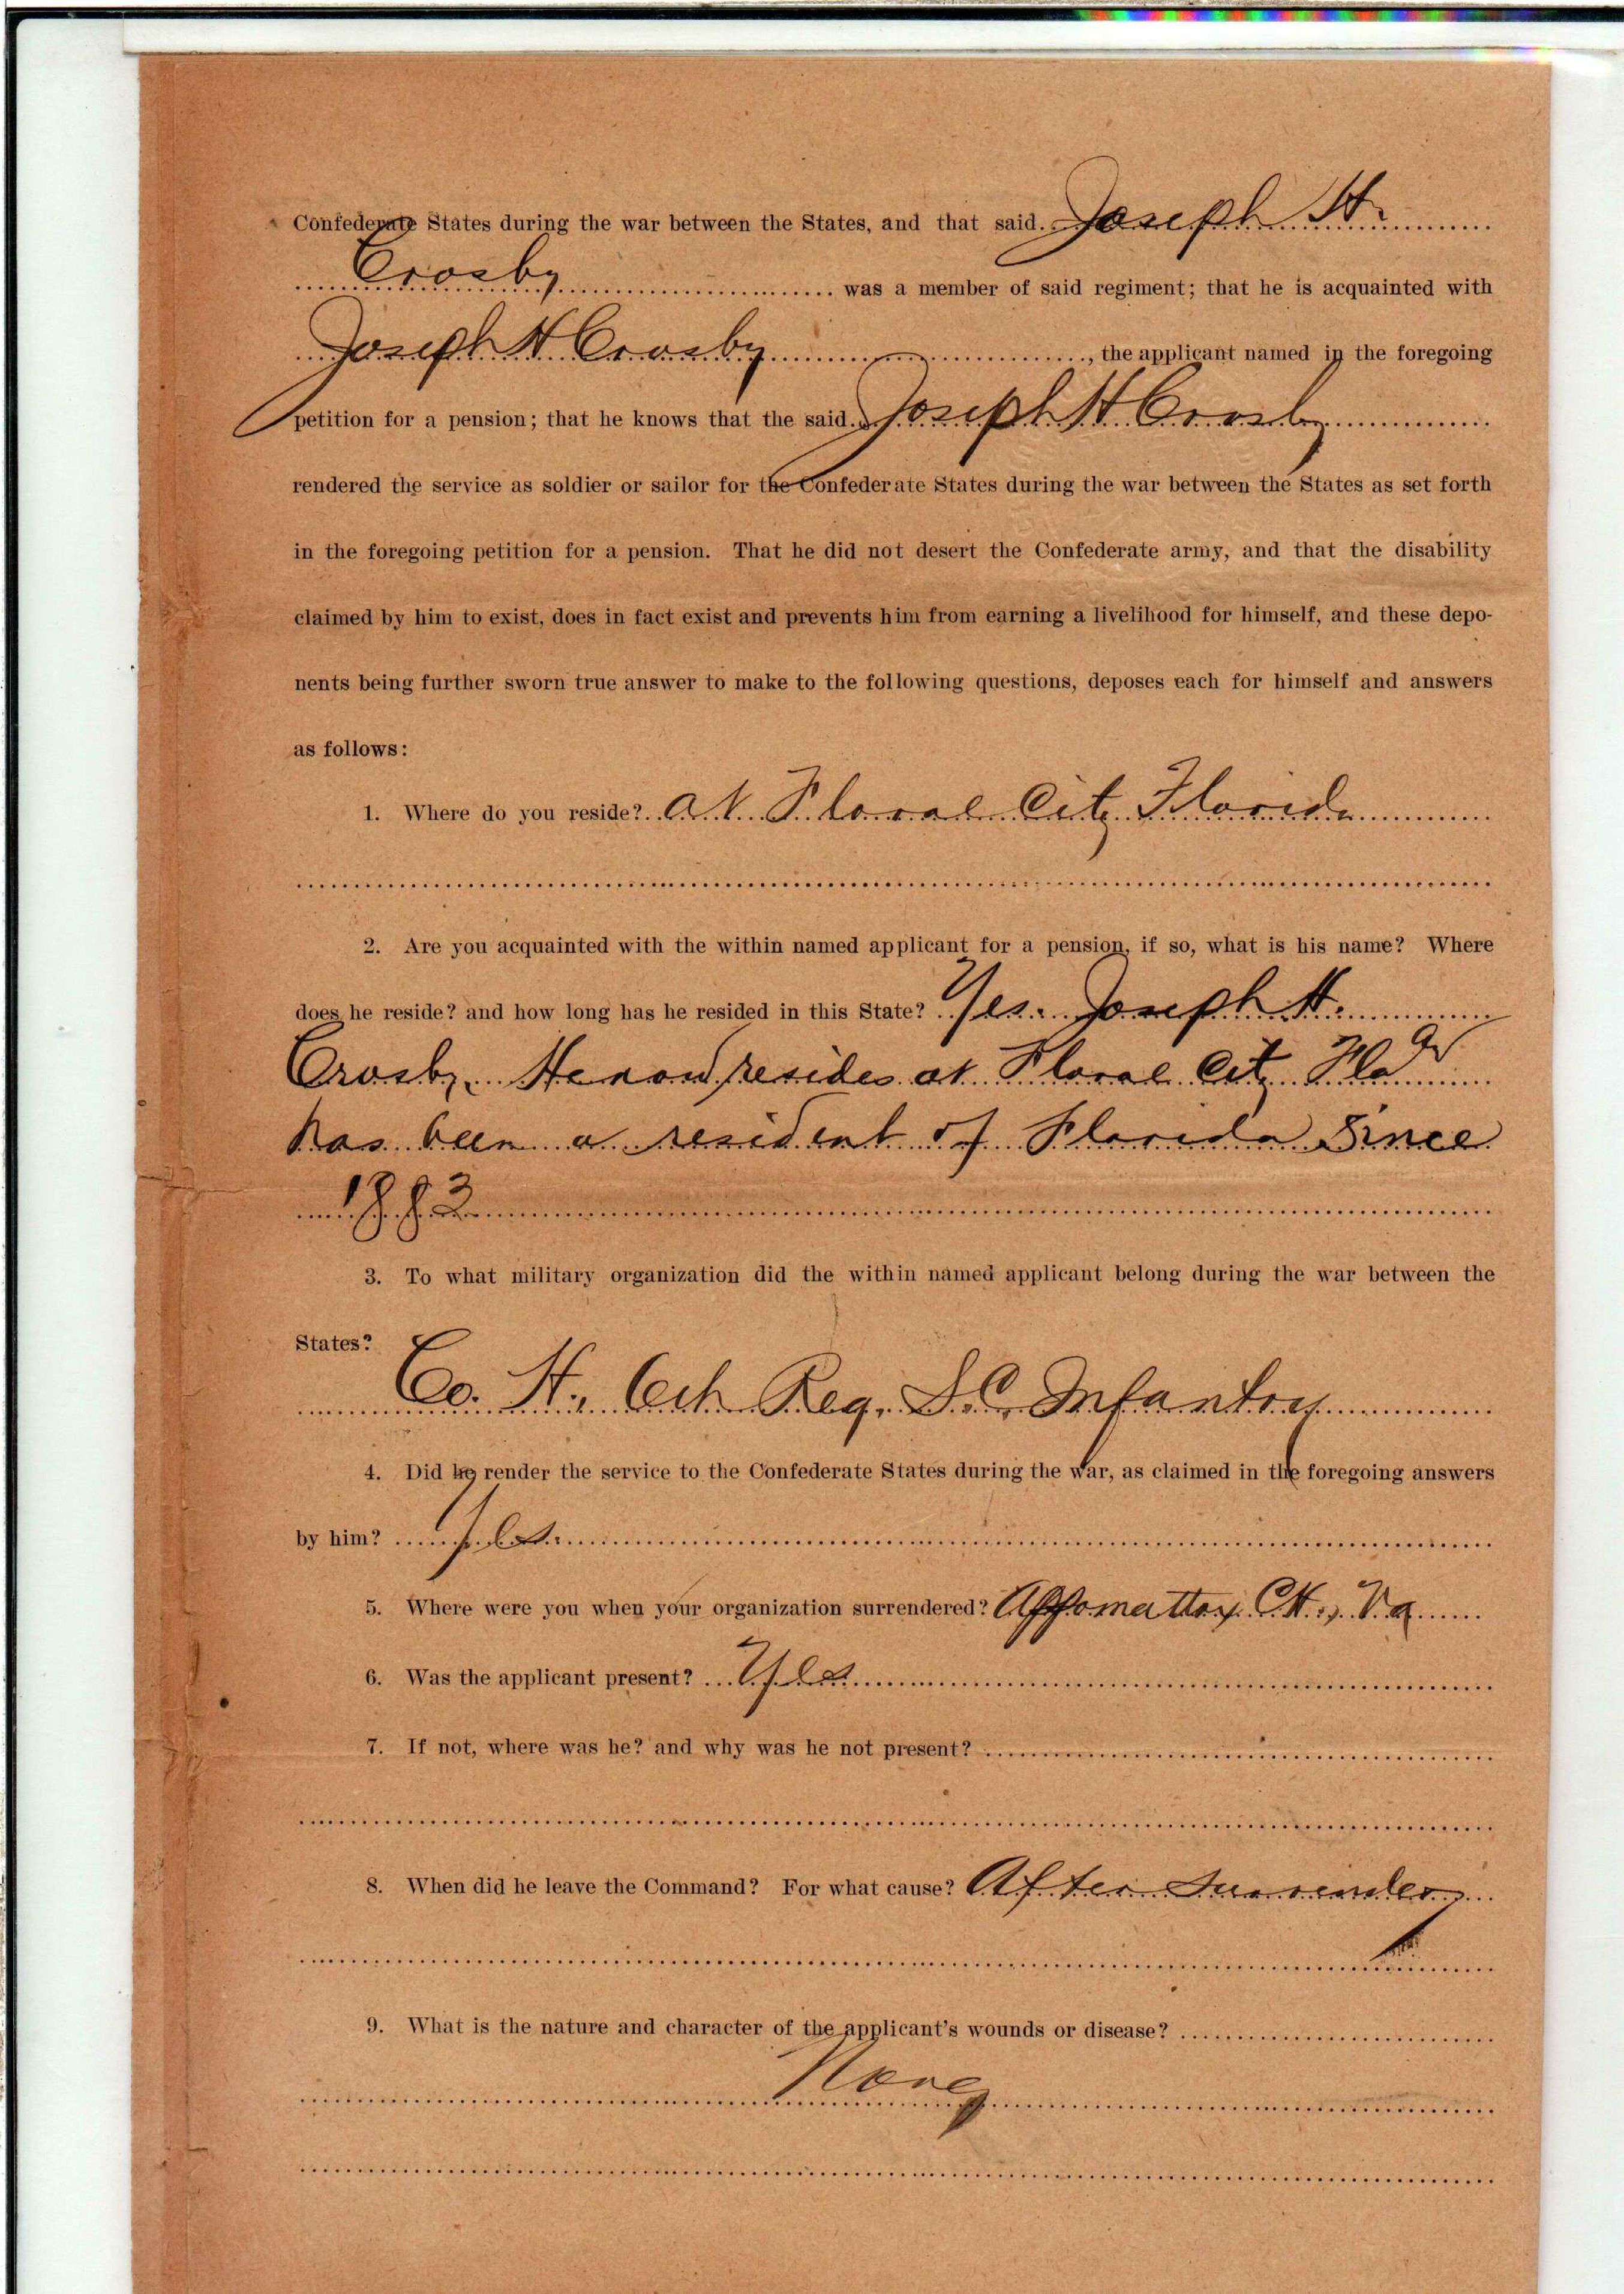 Confederate States during the war between the States, and that said Joseph H.
Crosby was a member of said regiment; that he is acquainted with
Joseph H Crosby, the applicant named in the foregoing
petition for a pension; that he knows that the said Joseph H Crosby
rendered the service as soldier or sailor for the Confederate States during the war between the States as set forth
in the foregoing petition for a pension. That he did not desert the Confederate army, and that the disability
claimed by him to exist, does in fact exist and prevents him from earning a livelihood for himself, and these depo-
nents being further sworn true answer to make to the following questions, deposes each for himself and answers
as follows:
1. Where do you reside? At Floral City Florida
2. Are you acquainted with the within named applicant for a pension, if so, what is his name? Where
does he reside? and how long has he resided in this State? Yes. Joseph H.
Crosby. He now resides at Floral City Fla
has been a resident of Florida Since
1883
3. To what military organization did the within named applicant belong during the war between the
States?
Co. H., 6th Reg. S.C. Infantry
4. Did he render the service to the Confederate States during the war, as claimed in the foregoing answers
by him? Yes.
5. Where were you when your organization surrendered? Appomattox C.H., Va
6. Was the applicant present? Yes
7. If not, where was he? and why was he not present?
8. When did he leave the Command? For what cause? After Surrender
9. What is the nature and character of the applicant's wounds or disease?
None